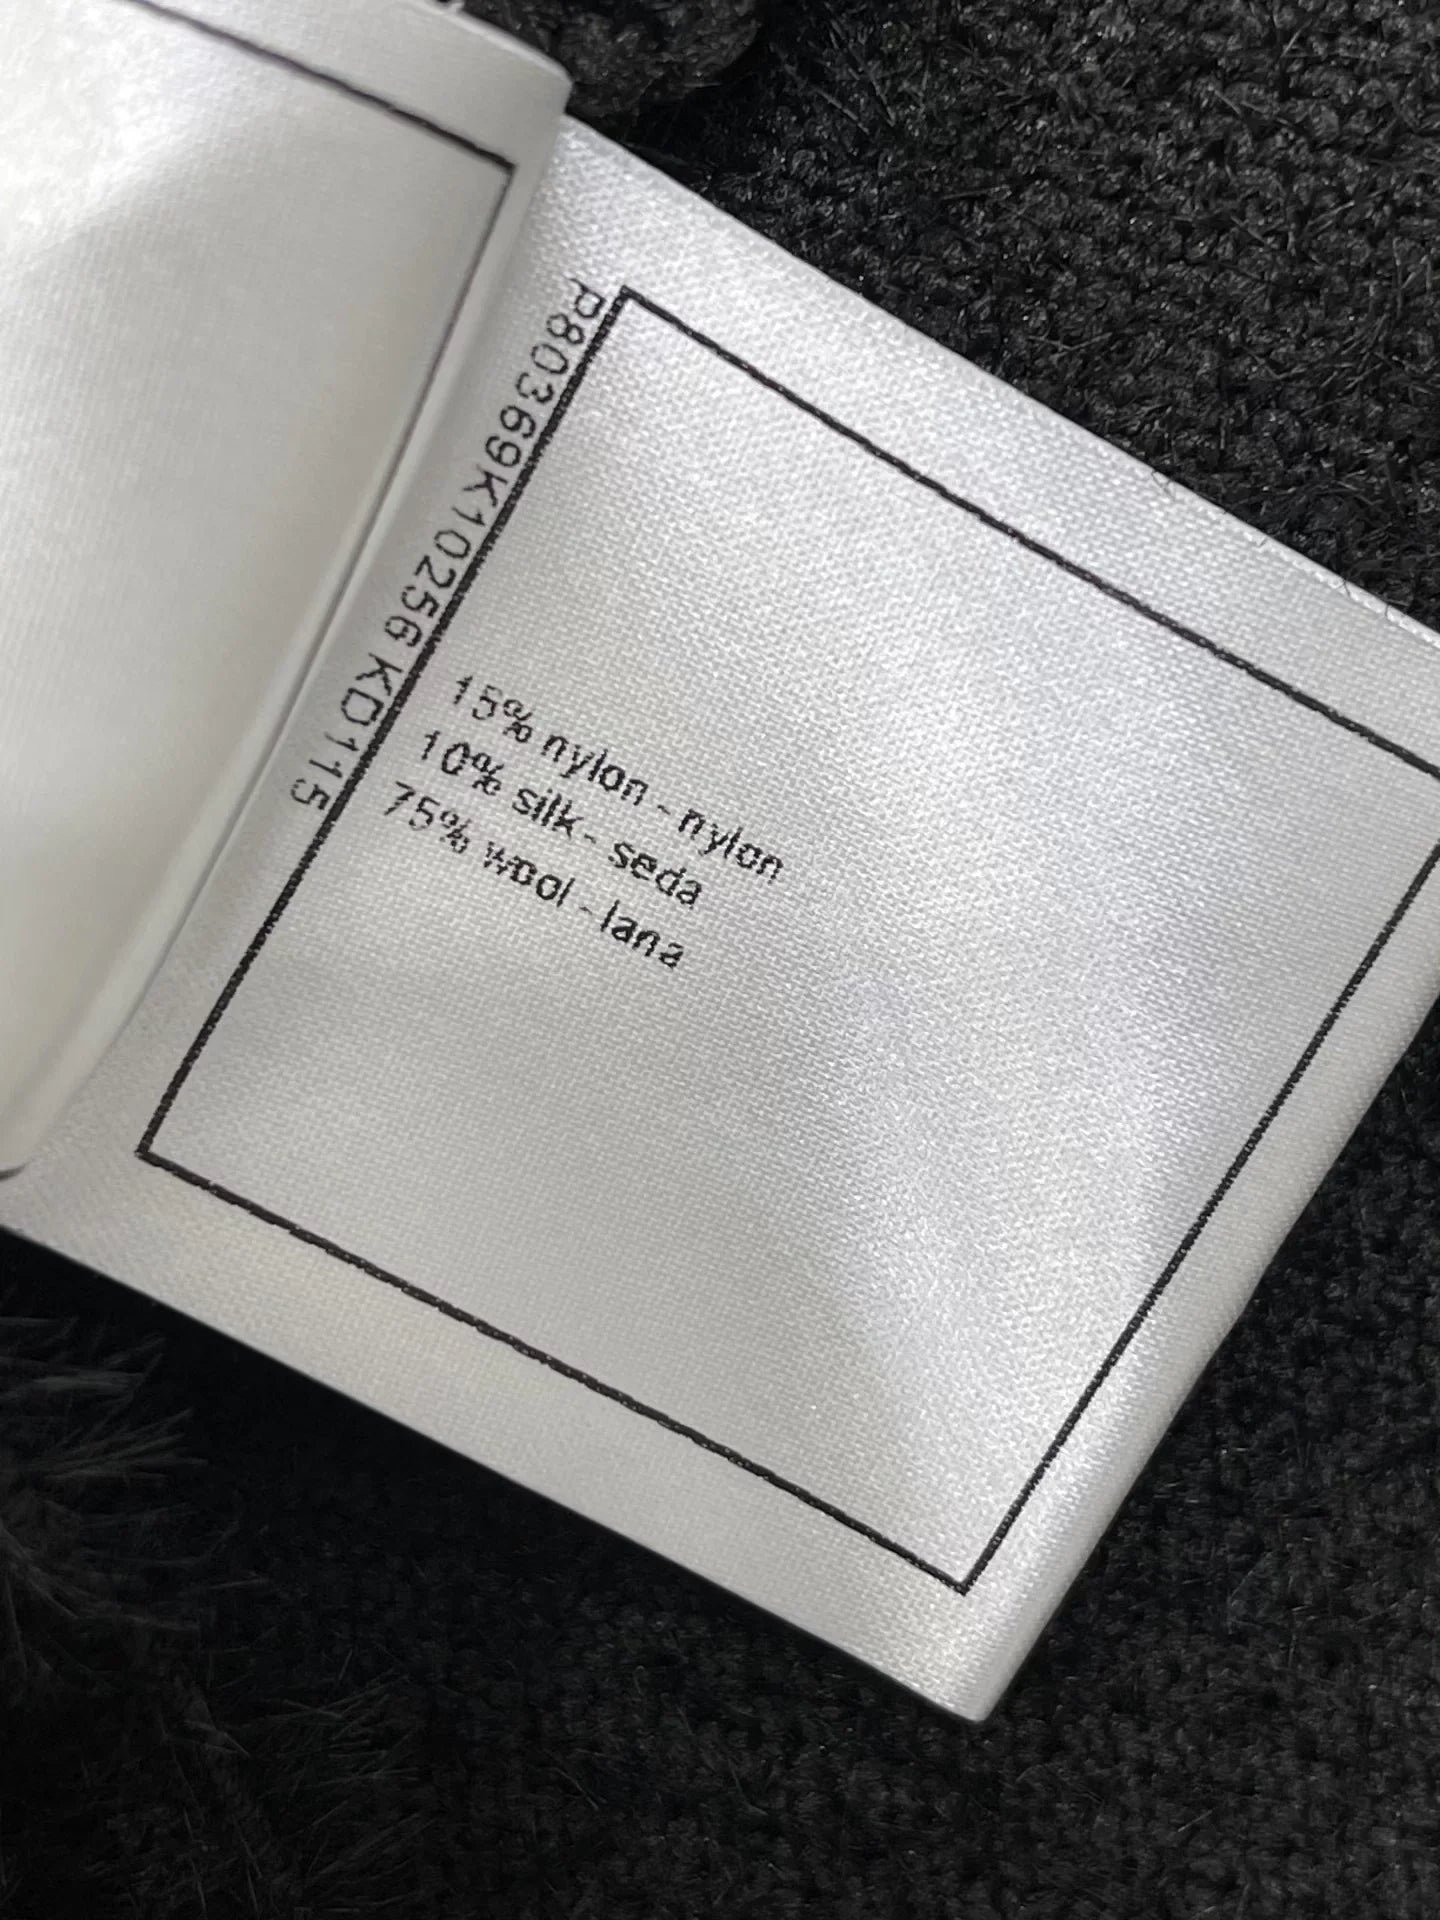 P80369K10256 KD115
15% nylon - nylon
10% silk - seda
75% wool - lana